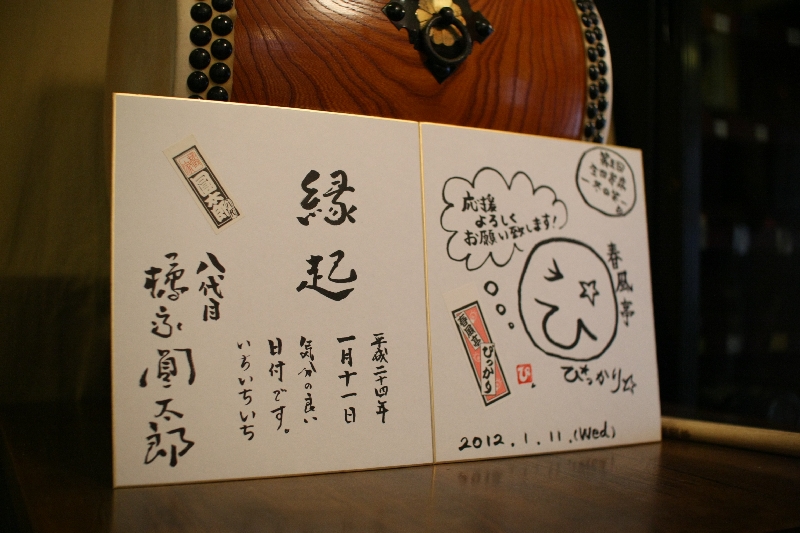 縁起
平成二十四年
一月十一日
気分の良い
日付です。
いちいちいち
八代目
橘家圓太郎
圓太郎
応援
よろしく
お願い致します!
春風亭
ぴっかり☆
ひ
春風亭
ぴっかり
ぴ
2012.1.11.(Wed)